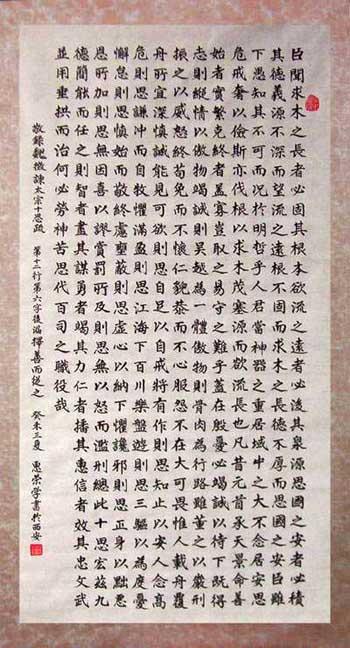 臣聞求木之長者必固其根本欲流之遠者必浚其泉源思國之安者必積
其德義源不深而望流之遠根不固而求木之長德不厚而思國之安臣雖
下愚知其不可而況於明哲乎人君當神器之重居域中之大不念居安思
危戒奢以儉斯亦伐根以求木茂塞源而欲流長也凡昔元首承天景命善
始者實繁克終者蓋寡豈取之易守之難乎蓋在殷憂必竭誠以待下既得
志則縱情以傲物竭誠則吳越為一體傲物則骨肉為行路雖董之以嚴刑
振之以威怒終苟免而不懷仁貌恭而不心服怨不在大可畏惟人載舟覆
舟所宜深慎誠能見可欲則思自足以自戒將有作則思知止以安人念高
危則思謙沖而自牧懼滿盈則思江海下百川樂盤遊則思三驅以為度憂
懈怠則思慎始而敬終慮壅蔽則思虛心以納下懼讒邪則思正身以黜惡
恩所加則思無因喜以謬賞罰所及則思無以怒而濫刑總此十思宏茲九
德簡能而任之則智者盡其謀勇者竭其力仁者播其惠信者效其忠文武
並用垂拱而治何必勞神苦思代百司之職役哉
敬錄魏徵諫太宗十思疏 第十二行第六字後漏擇善而從之 癸未三夏 惠榮學書於西安